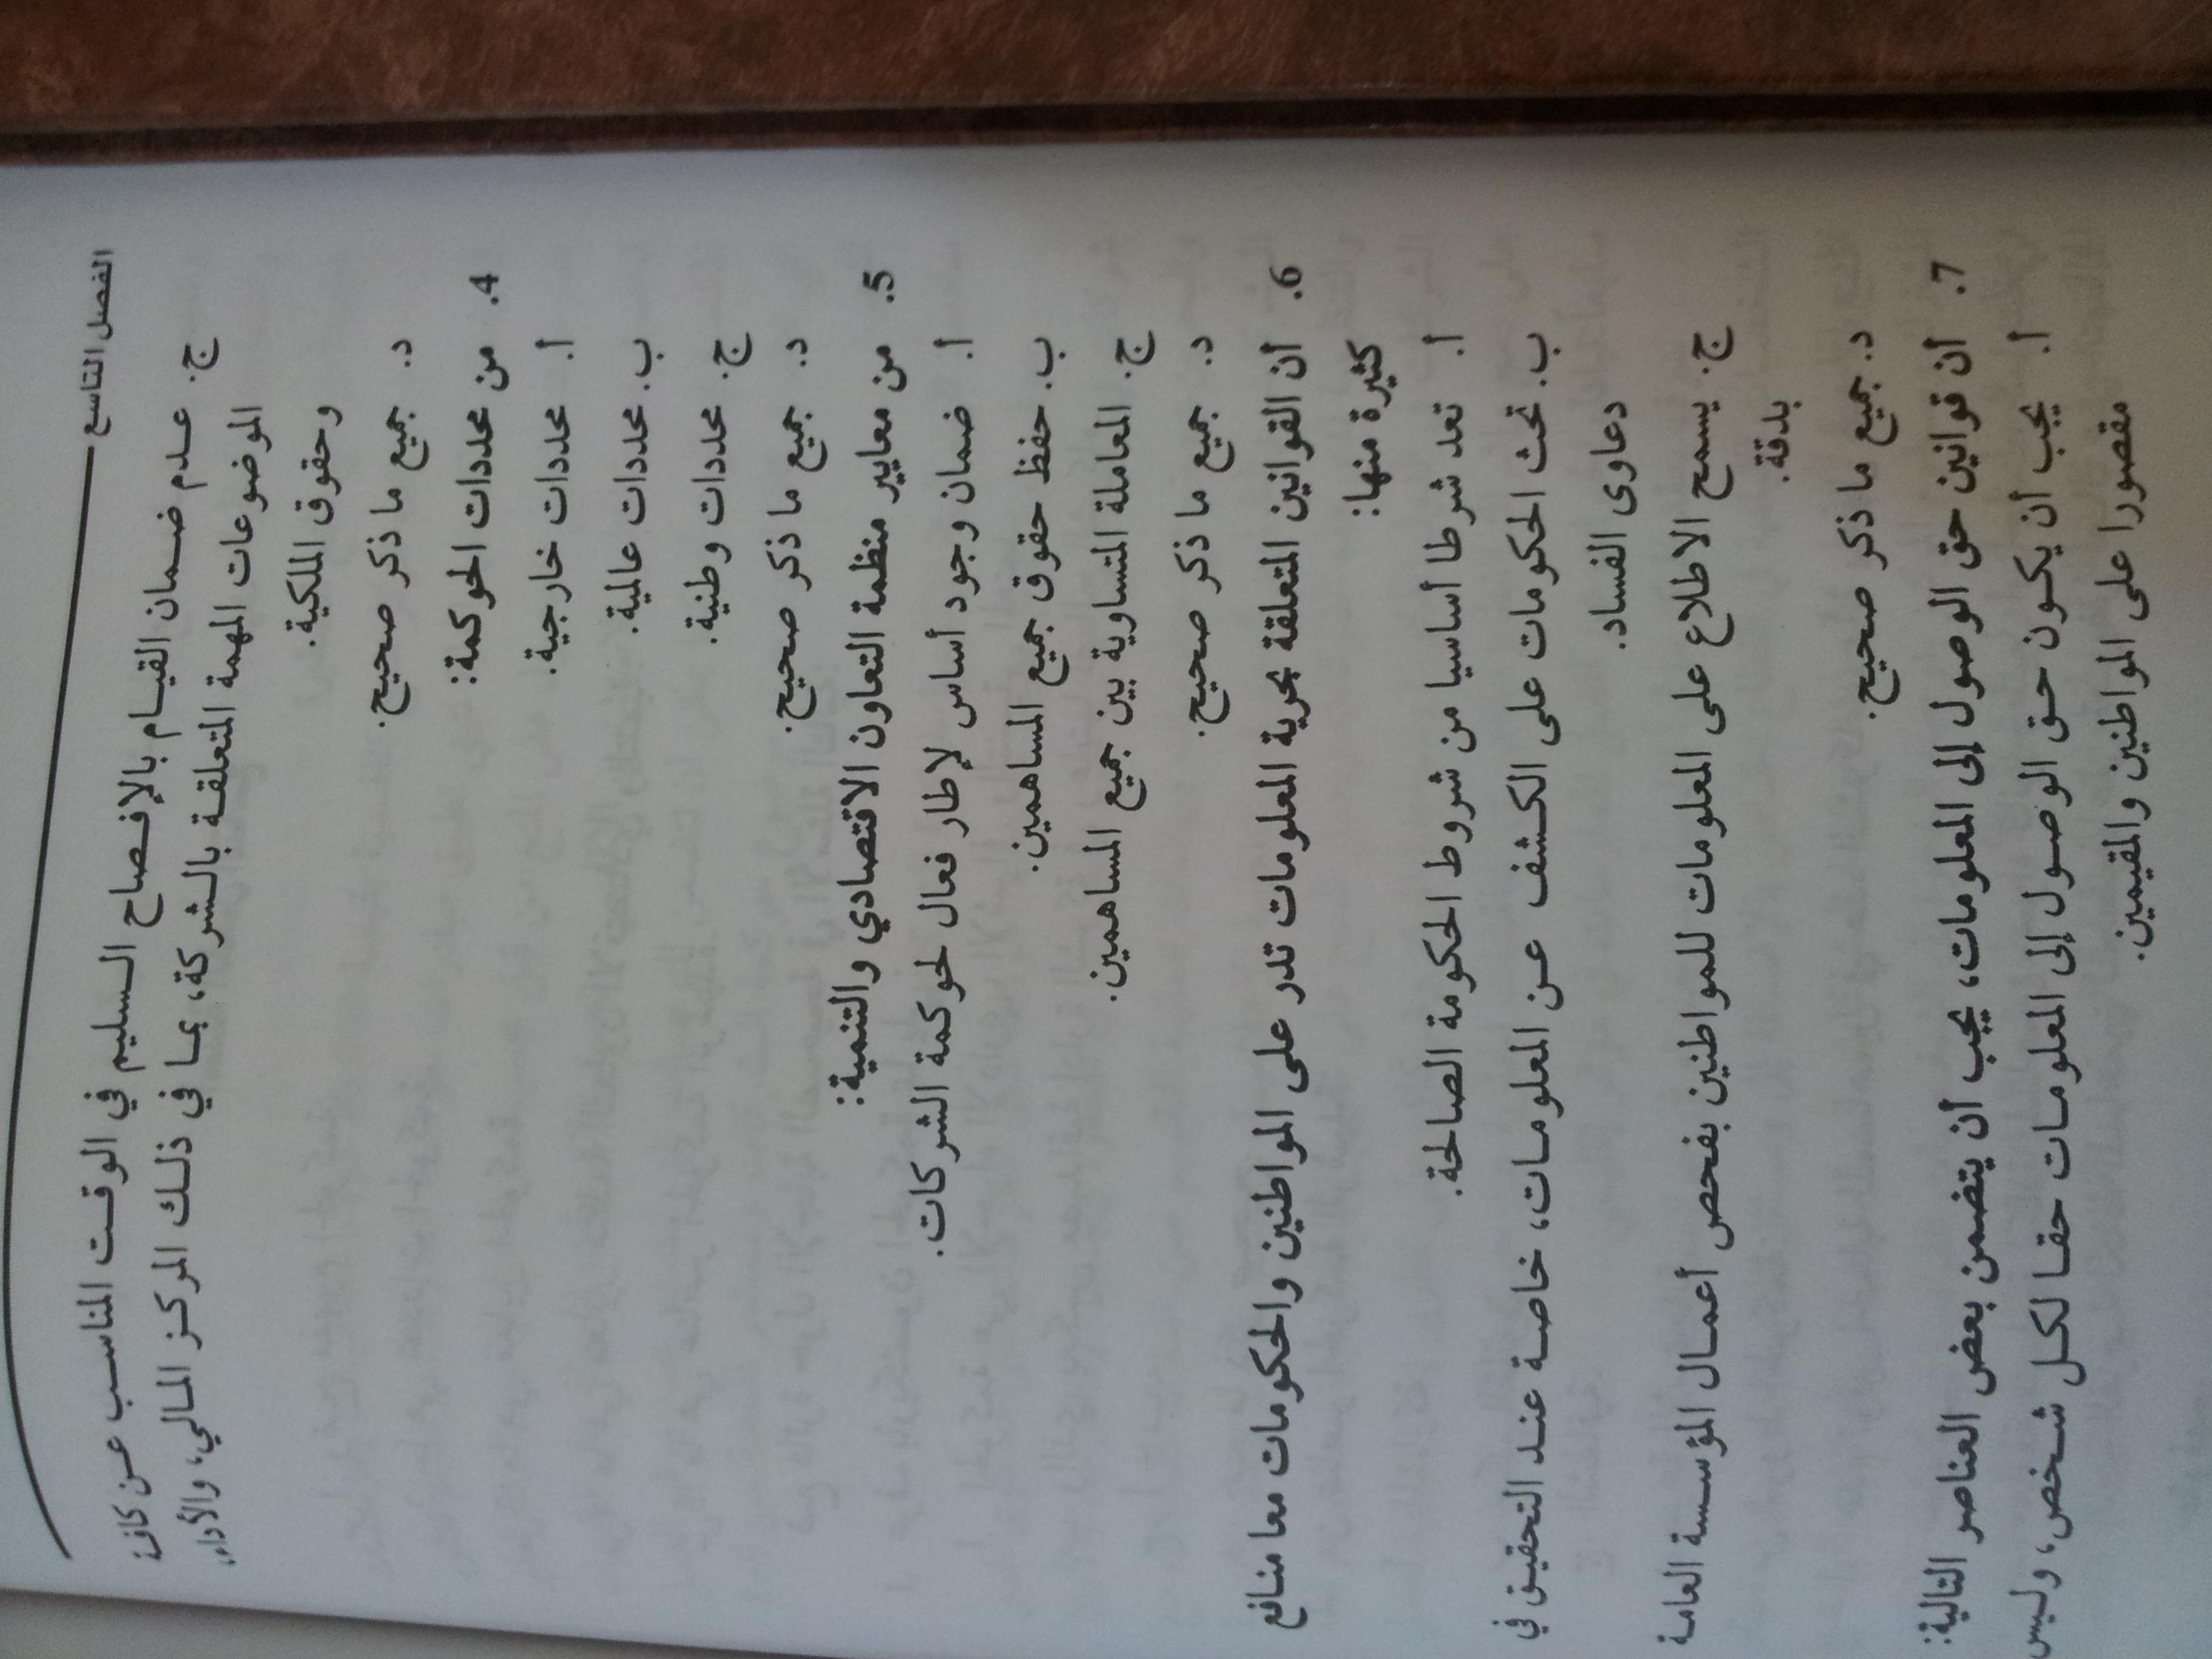 الفصل التاسع
ج. عدم ضمان القيام بالإفصاح السليم في الوقت المناسب عن كافة
الموضوعات المهمة المتعلقة بالشركة، بما في ذلك المركز المالي، والأداء،
وحقوق الملكية.
د. جميع ما ذكر صحيح.
4. من محددات الحوكمة:
أ. محددات خارجية.
ب. محددات عالمية.
ج. محددات وطنية.
د. جميع ما ذكر صحيح.
5. من معايير منظمة التعاون الاقتصادي والتنمية:
أ. ضمان وجود أساس لإطار فعال لحوكمة الشركات.
ب. حفظ حقوق جميع المساهمين.
ج. المعاملة المتساوية بين جميع المساهمين.
د. جميع ما ذكر صحيح.
6. أن القوانين المتعلقة بحرية المعلومات تدر على المواطنين والحكومات معا منافع
كثيرة منها:
أ. تعد شرطا أساسيا من شروط الحكومة الصالحة.
ب. تحث الحكومات على الكشف عن المعلومات، خاصة عند التحقيق في
دعاوى الفساد.
ج. يسمح الاطلاع على المعلومات للمواطنين بفحص أعمال المؤسسة العامة
بدقة.
د. جميع ما ذكر صحيح.
7. أن قوانين حق الوصول إلى المعلومات، يجب أن يتضمن بعض العناصر التالية:
أ. يجب أن يكون حق الوصول إلى المعلومات حقا لكل شخص، وليس
مقصورا على المواطنين والمقيمين.